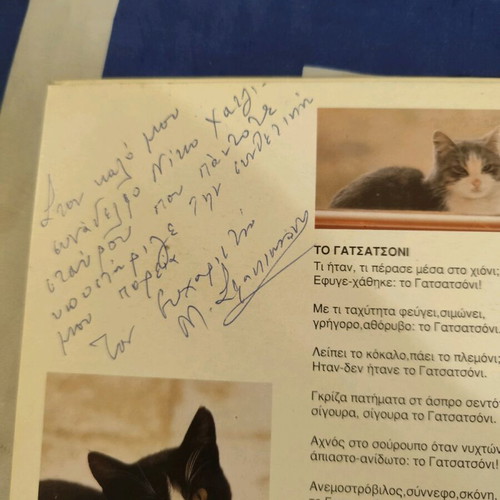 Στον καλό μου
συνάδελφο Νίκο Χατζη-
σταύρου που πάντοτε
υποστήριζε την συνθετική
μου πορεία
Τον ευχαριστώ
Μ.
ΤΟ ΓΑΤΣΑΤΣΟΝΙ
Τι ήταν, τι πέρασε μέσα στο χιόνι;
Εφυγε-χάθηκε: το Γατσατσόνι!
Με τι ταχύτητα φεύγει,σιμώνει,
γρήγορο,αθόρυβο: το Γατσατσόνι.
Λείπει το κόκαλο,πάει το πλεμόνι;
Ηταν-δεν ήτανε το Γατσατσόνι.
Γκρίζα πατήματα στ άσπρο σεντό
σίγουρα, σίγουρα το Γατσατσόνι.
Αχνός στο σούρουπο όταν νυχτών
άπιαστο-ανίδωτο: το Γατσατσόνι!
Ανεμοστρόβιλος,σύννεφο,σκόνη,